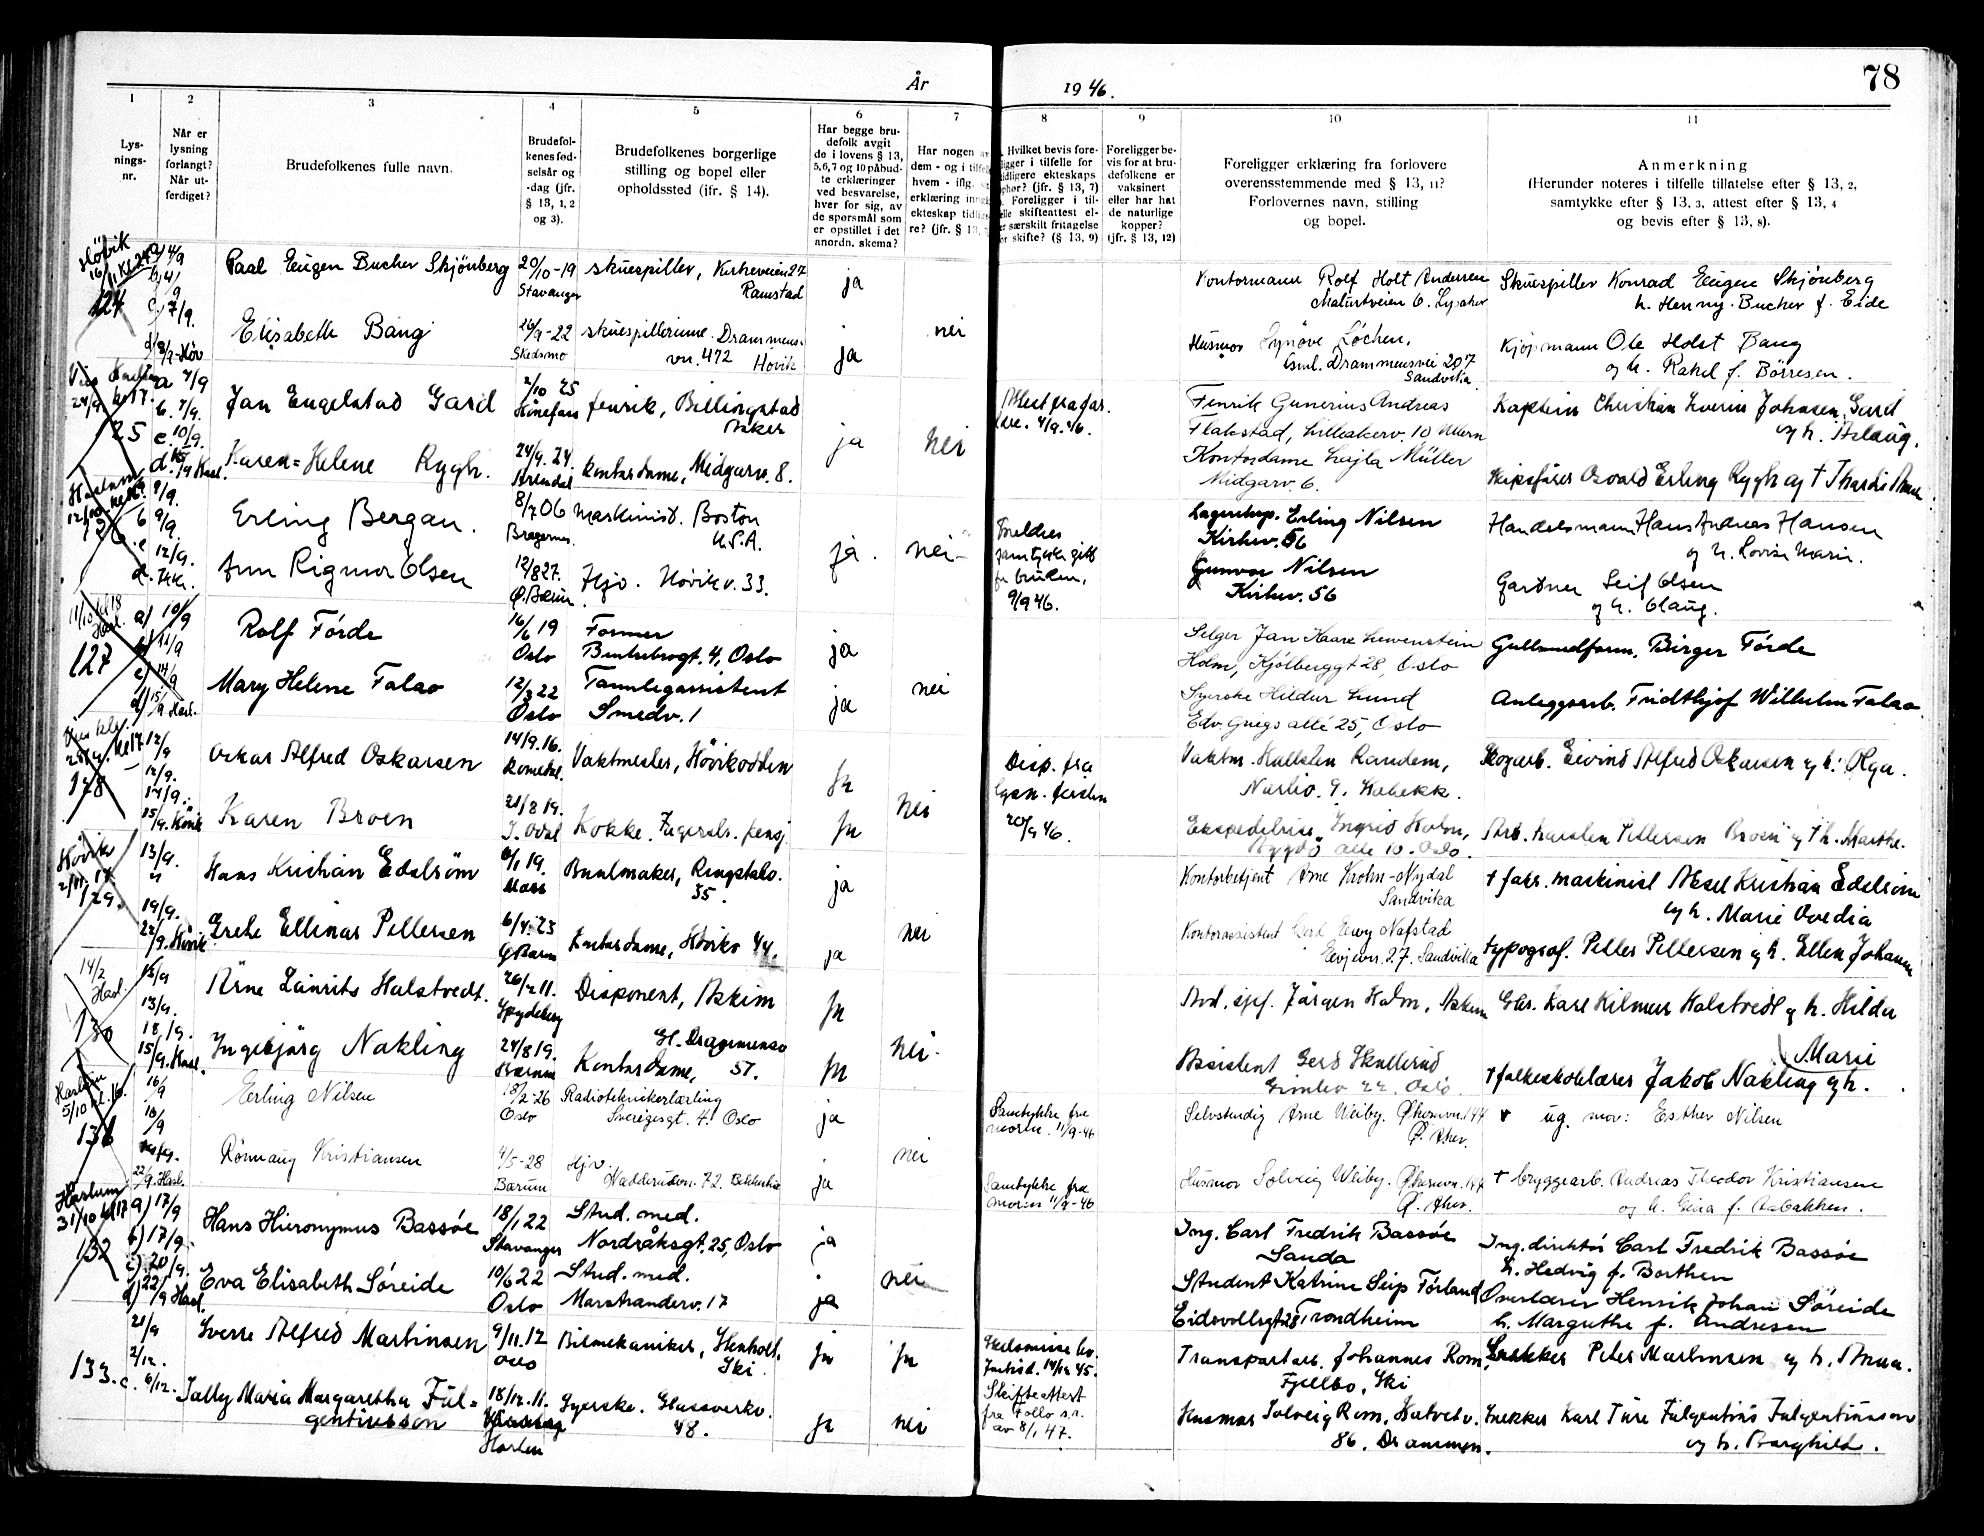 År 1946.
78
1 2 3 4 5 6 7 8 9 10 11
Lys-
nings-
nr.
Når er
lysning
forlangt?
Når ut-
ferdiget?
Brudefolkenes fulle navn.
Brudefol-
kenes fød-
selsår og
-dag (jfr.
§ 13, 1, 2
og 3).
Brudefolkenes borgerlige
stilling og bopel eller
opholdssted (jfr. § 14).
Har begge bru-
defolk avgit
de i lovens § 13,
5, 6, 7 og 10 påbud-
te erklæringer
ved besvarelse,
hver for sig, av
de spørsmål som
er opstillet i det
anordn. skema?
Har nogen av
dem - og i tilfelle
hvem - iflg.
erklæring inng
ekteskap tidlig
re? (jfr. § 13,
Hvilket bevis fore-
ligger i tilfelle for
tidligere ekteskaps
ophør? (jfr. § 13, 7)
Foreligger i til-
felle skifteattest el-
er særskilt fritagelse
for skifte? (§ 13, 9)
Foreligger be-
vis for at bru-
defolkene er
vaksinert
eller har hat
de naturlige
kopper?
(jfr. § 13, 12)
Foreligger erklæring fra forlovere
overensstemmende med § 13, 11?
Forlovernes navn, stilling
og bopel.
Anmerkning
(Herunder noteres i tilfelle tillatelse efter § 13, 2,
samtykke efter § 13, 3, attest efter § 13, 4
og bevis efter § 13, 8).
Høvik
124
a) 4/9
c) 7/9.
Paal Eugen Bucher Skjönberg
20/10-19
Stavanger
skuespiller, Kirkeveien 27
Ramstad
ja
Kontormann Rolf Holt Andersen
Maltrtveien 6. Lysaker
Skuespiller Konrad Eugen Skjönberg
h. Henny Bucher f. Eide
Elisabeth Bang
26/9-22
Skedsmo
skuespillerinne. Drammens-
vn. 472 Hövik
ja
nei
Husmor Synöve Løchen,
Gml. Drammensvei 207
Sandvika
Kjøpmann Ole Holst Bang
og h. Rakel f. Börresen.
25
a 7/9
b. 7/9.
c. 10/9.
Jan Engelstad Gard
2/10 25
Hönefoss
fenrik, Billingstad
Asker
ja
nei
Attest fra far.
4/9.46.
Fenrik Gunerius Andreas
Flakstad, Lilleakerv. 10 Ullern
Kaptein Christian Sverin Johnsen Gard
og h. Aslaug.
Karen-Helene Rygh.
24/9. 24.
Arendal
kontordame, Midgarv. 8.
Kontordame Lajla Müller
Midgarv. 6.
Skipsfører Osvald Erling Rygh og † Thordis Anne
Haslum
126
9/9.
b 9/9.
c 12/9.
Erling Bergan.
8/7 06
Bragernes.
Maskinist. Boston
U.S.A.
ja.
nei-
Foreldres
samtykke gitt
for bruden,
9/9 46.
Lagereksp. Erling Nilsen
Kirkev. 56
Handelsmann Hans Andreas Hansen
og h. Lovise Marie.
Ann Rigmor Olsen
12/8 27.
Ø. Bærum
Hjv. Hövikv. 33.
Gunvor Nilsen
Kirkev. 56
Gartner Leif Olsen
og h. Olaug.
127
a) 10/9
b) 11/9
c) 14/9
d) 15/9 Hasl.
Rolf Förde
16/6 19
Oslo
Former
Bentsebrogt. 4, Oslo
ja
Selger Jan Kaare Lewenstein
Holm, Kjölberggt 28, Oslo
Gullsmedform. Birger Förde
Mary Helene Falao
12/3 22
Oslo
Tannlegassistent
Smedv. 1
ja
nei
Syerske Hildur Lund
Edv. Griegs alle 25, Oslo
Anleggsarb. Fridthjof Wilhelm Falao
128
12/9
12/9.
14/9.
15/9. Hövik
Oskar Alfred Oskarsen
14/9. 16.
Romedal.
Vaktmester, Hövikodden
ja
Disp. fra
20/9 46.
Vaktm. Hallsten Randem,
Narbo. 9, Høbekk.
Skogarb. Eivind Alfred Oskarsen og h. Olga.
Karen Broen
21/8 19.
Kokke. Fagerstr. pensj.
ja
nei
Ekspeditrise Ingrid Holm,
Bygdö alle 10. Oslo.
Arb. Karsten Pettersen Broen og † h. Marthe.
Hövik
129.
13/9.
19/9.
22/9. Hövik
Hans Kristian Edström
6/1 19.
Moss
Buntmaker, Ringstabv.
35.
ja
Kontorbetjent Arne Krohn-Nydal
Sandvika
† farr. maskinist Aksel Kristian Edström
og h. Marie Ovedia
Grethe Ellinor Pettersen
6/4. 23
Ø Bærum
Kontordame, Hövikv 44.
ja
nei
Kontorassistent Gerd Eewy Nafstad
Eevjevn. 27. Sandvika
typograf. Petter Pettersen og h. Ellen Johanne
14/2
Hasl.
130
13/9
13/9.
18/9.
15/9. Hasl.
Arne Lauritz Halstvedt.
26/2 11.
Spydeberg
Disponent, Askim
ja
Avd. sjef. Jörgen Holm, Askim
Gbr. Karl Hilmar Halstvedt og h. Hilda
Marie
Ingebjørg Nakling
24/8 19.
Bærum
Gl. Drammensv
Kontordame, 57.
ja
nei.
Assistent Gerd Skullerud
Gimlev 22. Oslo.
† folkeskolelærer Jakob Nakling og h.
Haslum
5/10 kl. 16.
131
16/9
16/9
22/9. Hasl.
Erling Nilsen
18/2-26
Oslo
Radioteknikerlærling
Sverigesgt. 4. Oslo
ja
Samtykke fra
moren. 11/9-46
Selvstendig Arne Weiby. Økernvn. 147
Ø. Aker.
ug. mor: Esther Nilsen
Rönnaug Kristiansen
4/5-28
Bærum
Hjv.
Nadderudvn. 72. Bekkestua
ja
nei
Samtykke fra
moren 11/9-46
Husmor Solveig Weiby. Økernvn. 147
Ø. Aker.
† bryggearb. Andreas Theodor Kristiansen
og h. Gina f. Aabakken.
Haslum
31/10 kl 17
132
a) 17/9
b) 17/9.
c) 20/9.
d) 22/9 Hasl.
Hans Hieronymus Bassöe
18/1 22
Stavanger
Stud. med.
Nordråksgt. 25, Oslo
ja
Ing. Carl Fredrik Bassöe
Sauda
Ing. direktör Carl Fredrik Bassöe
h. Hedvig f. Borthen
Eva Elisabeth Söreide
10/6 22
Oslo
Stud. med.
Marstranderv. 17
ja
nei
Student Katrine Seip Förland
Eidsvollsgt 28, Trondheim
Overlærer Henrik Johan Söreide
h. Margrethe f. Andresen
133.
21/9
2/12.
c. 6/12.
Sverre Alfred Martinsen
9/11. 12
Oslo
Bilmekaniker, Henholt.
Ski.
ja
ja
Skilsmisse bev.
14/12 45.
Transportarb. Johannes Rom.
Fjellbo, Ski
Snekker Peter Martinsen og h. Anna.
Sally Maria Margaretha Ful-
gentiusson
18/12. 11.
Horten
Syerske. Glassverkv.
48.
ja
nei
Skifteattest
fra Follo s.r.
av 8/1 47.
Husmor Solveig Rom, Hotvetv.
86, Drammen.
Snekker Karl Ture Fulgentius Fulgentiusson
og h. Borghild.